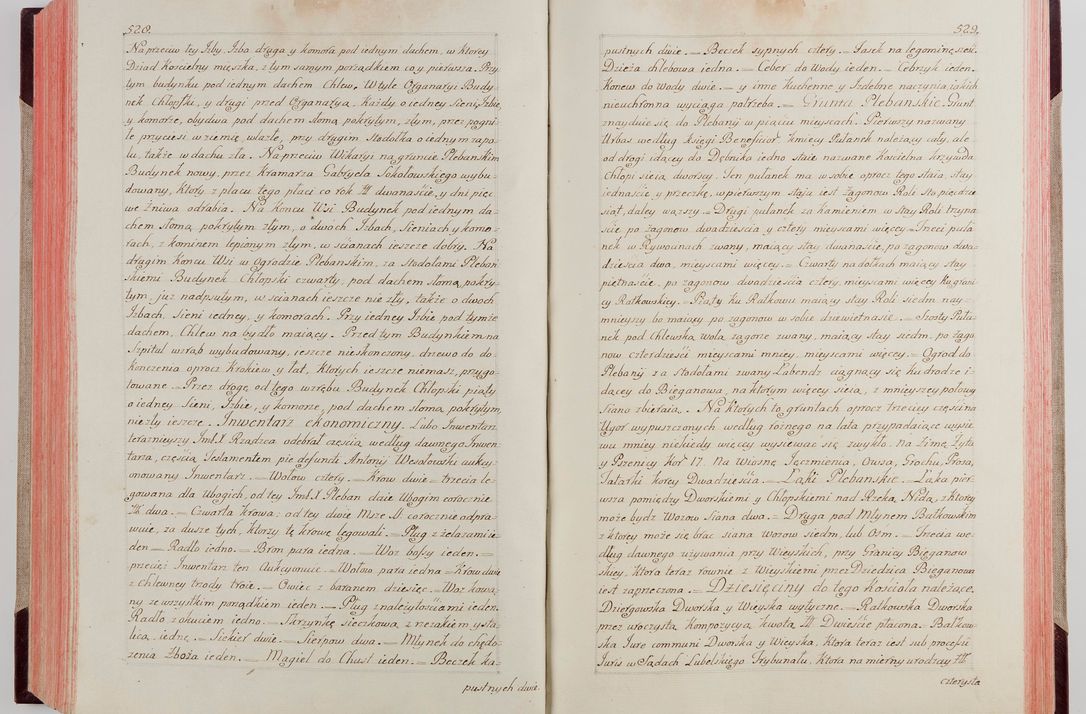 528.
Naprzeciw tey Izby Izba druga y komora pod iednym dachem, w ktorey
Dziad Koscielny mięszka, z tym samym porządkiem co y pierwsza. Przy
tym budynku pod iednym dachem Chlew. W tyle Organaryi Budy-
nek Chłopski, y drugi przed Organaryą. Każdy o iedney Sieni, Izbie,
y komorze, obydwa pod dachem słomą pokrytym, złym, przez pogni-
łe, przyciesi w ziemię wlazłe, przy drugim Stodołka o iednym zapo-
lu, także w dachu zła. Naprzeciw Wikaryi na gruncie Plebanskim
Budynek nowy, przez Kramarza Gabryela Sokołowskiego wybu-
dowany, ktory z placu tego płaci co rok zł dwanaście, y dni pięć
we żniwa odrabia. Na Koncu Wsi Budynek pod iednym da-
chem słomą pokrytym złym, o dwoch Izbach, Sieniach y komo-
rach, z kominem lepionym złym, w scianach ieszcze dobry. Na
drugim Koncu Wsi w Ogrodzie Plebanskim, za Stodołami Pleban-
skiemi Budynek Chłopski czwarty, pod dachem słomą pokry-
tym, iuż nadpsutym, w scianach ieszcze nie zły, także o dwoch
Izbach, Sieni iedney, y komorach. Przy iedney Izbie pod tymże
dachem, Chlew na bydło maiący. Przed tym Budynkiem na
Szpital wzrąb wybudowany, ieszcze nieskonczony, drzewo do do-
kończenia oprocz Krokiew y łat, ktorych ieszcze niemasz, przygo-
towane. = Przez drogę od tego wzrębu Budynek Chłopski piąty
o iedney Sieni, Izbie, y komorze, pod dachem słomą pokrytym,
nie zły ieszcze. Inwentarz ekonomiczny. Lubo Inwentarz
teraznieyszy Jmć X Rządzca odebrał częścią według dawnego Inwen-
tarza, częścią Testamentem pie defuncti Antonij Wesołowski aukcy-
onowany Inwentarz. = Wołow cztery. = Krow dwie = trzecia le-
gowana dla Ubogich, od tey Jmć X Pleban daie Ubogim corocznie
zł dwa. = Czwarta krowa: od tey dwie Msze S. corocznie odpra-
wuie, za dusze tych, ktorzy tę krowę legowali. = Pług z żelazami ie-
den = Radło iedno. = Bron para iedna. = Woz bosy ieden. =
przecięż Inwentarz ten Aukcyonuie. = Wołow para iedna = Krow dwie
z chlewney trzody troie. = Owiec z baranem dziesięć. = Woz kowa-
ny ze wszystkim porządkiem ieden. = Pług z należytościami ieden.
Radło z okuciem iedno. = Skrzynkę sieczkową z rzezakiem y sta-
lnicą, iednę. = Siekier dwie. = Sierpow dwa. = Młynek do chędo-
żenia Zboża ieden. = Magiel do Chust ieden. = Beczek ka-
pustnych dwie.
529.
pustnych dwie. = Beczek sypnych cztery. = Fasek na legominę sześć.
Dzieża chlebowa iedna. = Ceber do Wody ieden. = Cebrzyk ieden.
Konew do Wody dwie. = y inne Kuchenne y Izdebne naczynia, iakich
nieuchronna wyciąga potrzeba. = Grunta Plebanskie. Grunt
znayduie się do Plebanij w piąciu mieyscach. Pierwszy nazwany
Urbas według księgi Beneficior kmiecy Pułanek należący cały, ale
od drogi idącey do Dębnika iedno staie nazwane Koscielna Krzywda
Chłopi sieią dworscy. Ten pułanek ma w sobie oprocz tego staia, stay
iednascie, y przeczkę, w pierwszym staiu iest Zagonow Roli sto pięćdzie-
siąt, daley węższy. = Drugi pułanek za Kamieniem w Stay Roli trzyna-
ście, po zagonow dwadziescia y cztery mieyscami więcey = Trzeci puła-
nek w Rywoinach zwany, maiący stay dwanascie, po zagonow dwa-
dzieścia dwa, mieyscami więcey. = Czwarty na dołkach maiący stay
piętnaście, po zagonow dwadzieścia cztery mieyscami więcey Ku grani-
cy Ratkowskiey. = Piąty ku Ratkowu maiący stay Roli siedm nay-
mnieyszy bo maiący po zagonow w sobie dziewietnascie. = Szosty Puła-
nek pod Chlewską Wolą zagorze zwany, maiący stay siedm, po zago-
now czterdzieści mieyscami mniey, mieyscami więcey. = Ogrod do
Plebanij za Stodołami zwany Łabendź ciągnący się ku drodze i-
dącey do Bieganowa, na ktorym więcey sieią, z mnieyszey połowy
Siano zbieraią. Na ktorych to gruntach oprocz trzeciey częściną
Ugor wypuszczonych według rożnego na lata przypadaiące wysie-
wu mniey niekiedy więcey wysiewać się zwykło. Na Zimę Żyta
y Pszenicy Kor 17. Na Wiosnę Jęczmienia, Owsa, Grochu, Prosa,
Tatarki korcy Dwadzieścia. = Łąki Plebanskie = Łąka pier-
wsza pomiędzy Dworskiemi y Chłopskiemi nad Rzeką Nidą, z ktorey
może bydz Wozow Siana dwa. = Druga pod Młynem Bałkowskim
z ktorey może się brać siana Wozow siedm, lub Ośm. = Trzecia we-
dług dawnego używania przy Wieyskich, przy Granicy Bieganow-
skiey, ktora teraz rownie z Wieyskiemi przez Dziedzica Bieganowa
iest zaprzeczona. = Dziesięciny do tego kościoła należące.
Dzierzgowska Dworska y Wieyska wytyczne. = Ratkowska Dworska
przez wieczystą Kompozycyą kwotą zł Dwieście płacona. Bałkow-
ska Jure communi Dworska y Wieyska, ktora teraz iest sub processu
Juris w Sądach Lubelskiego Trybunału, ktora na mierny urodzay zł
czterysta